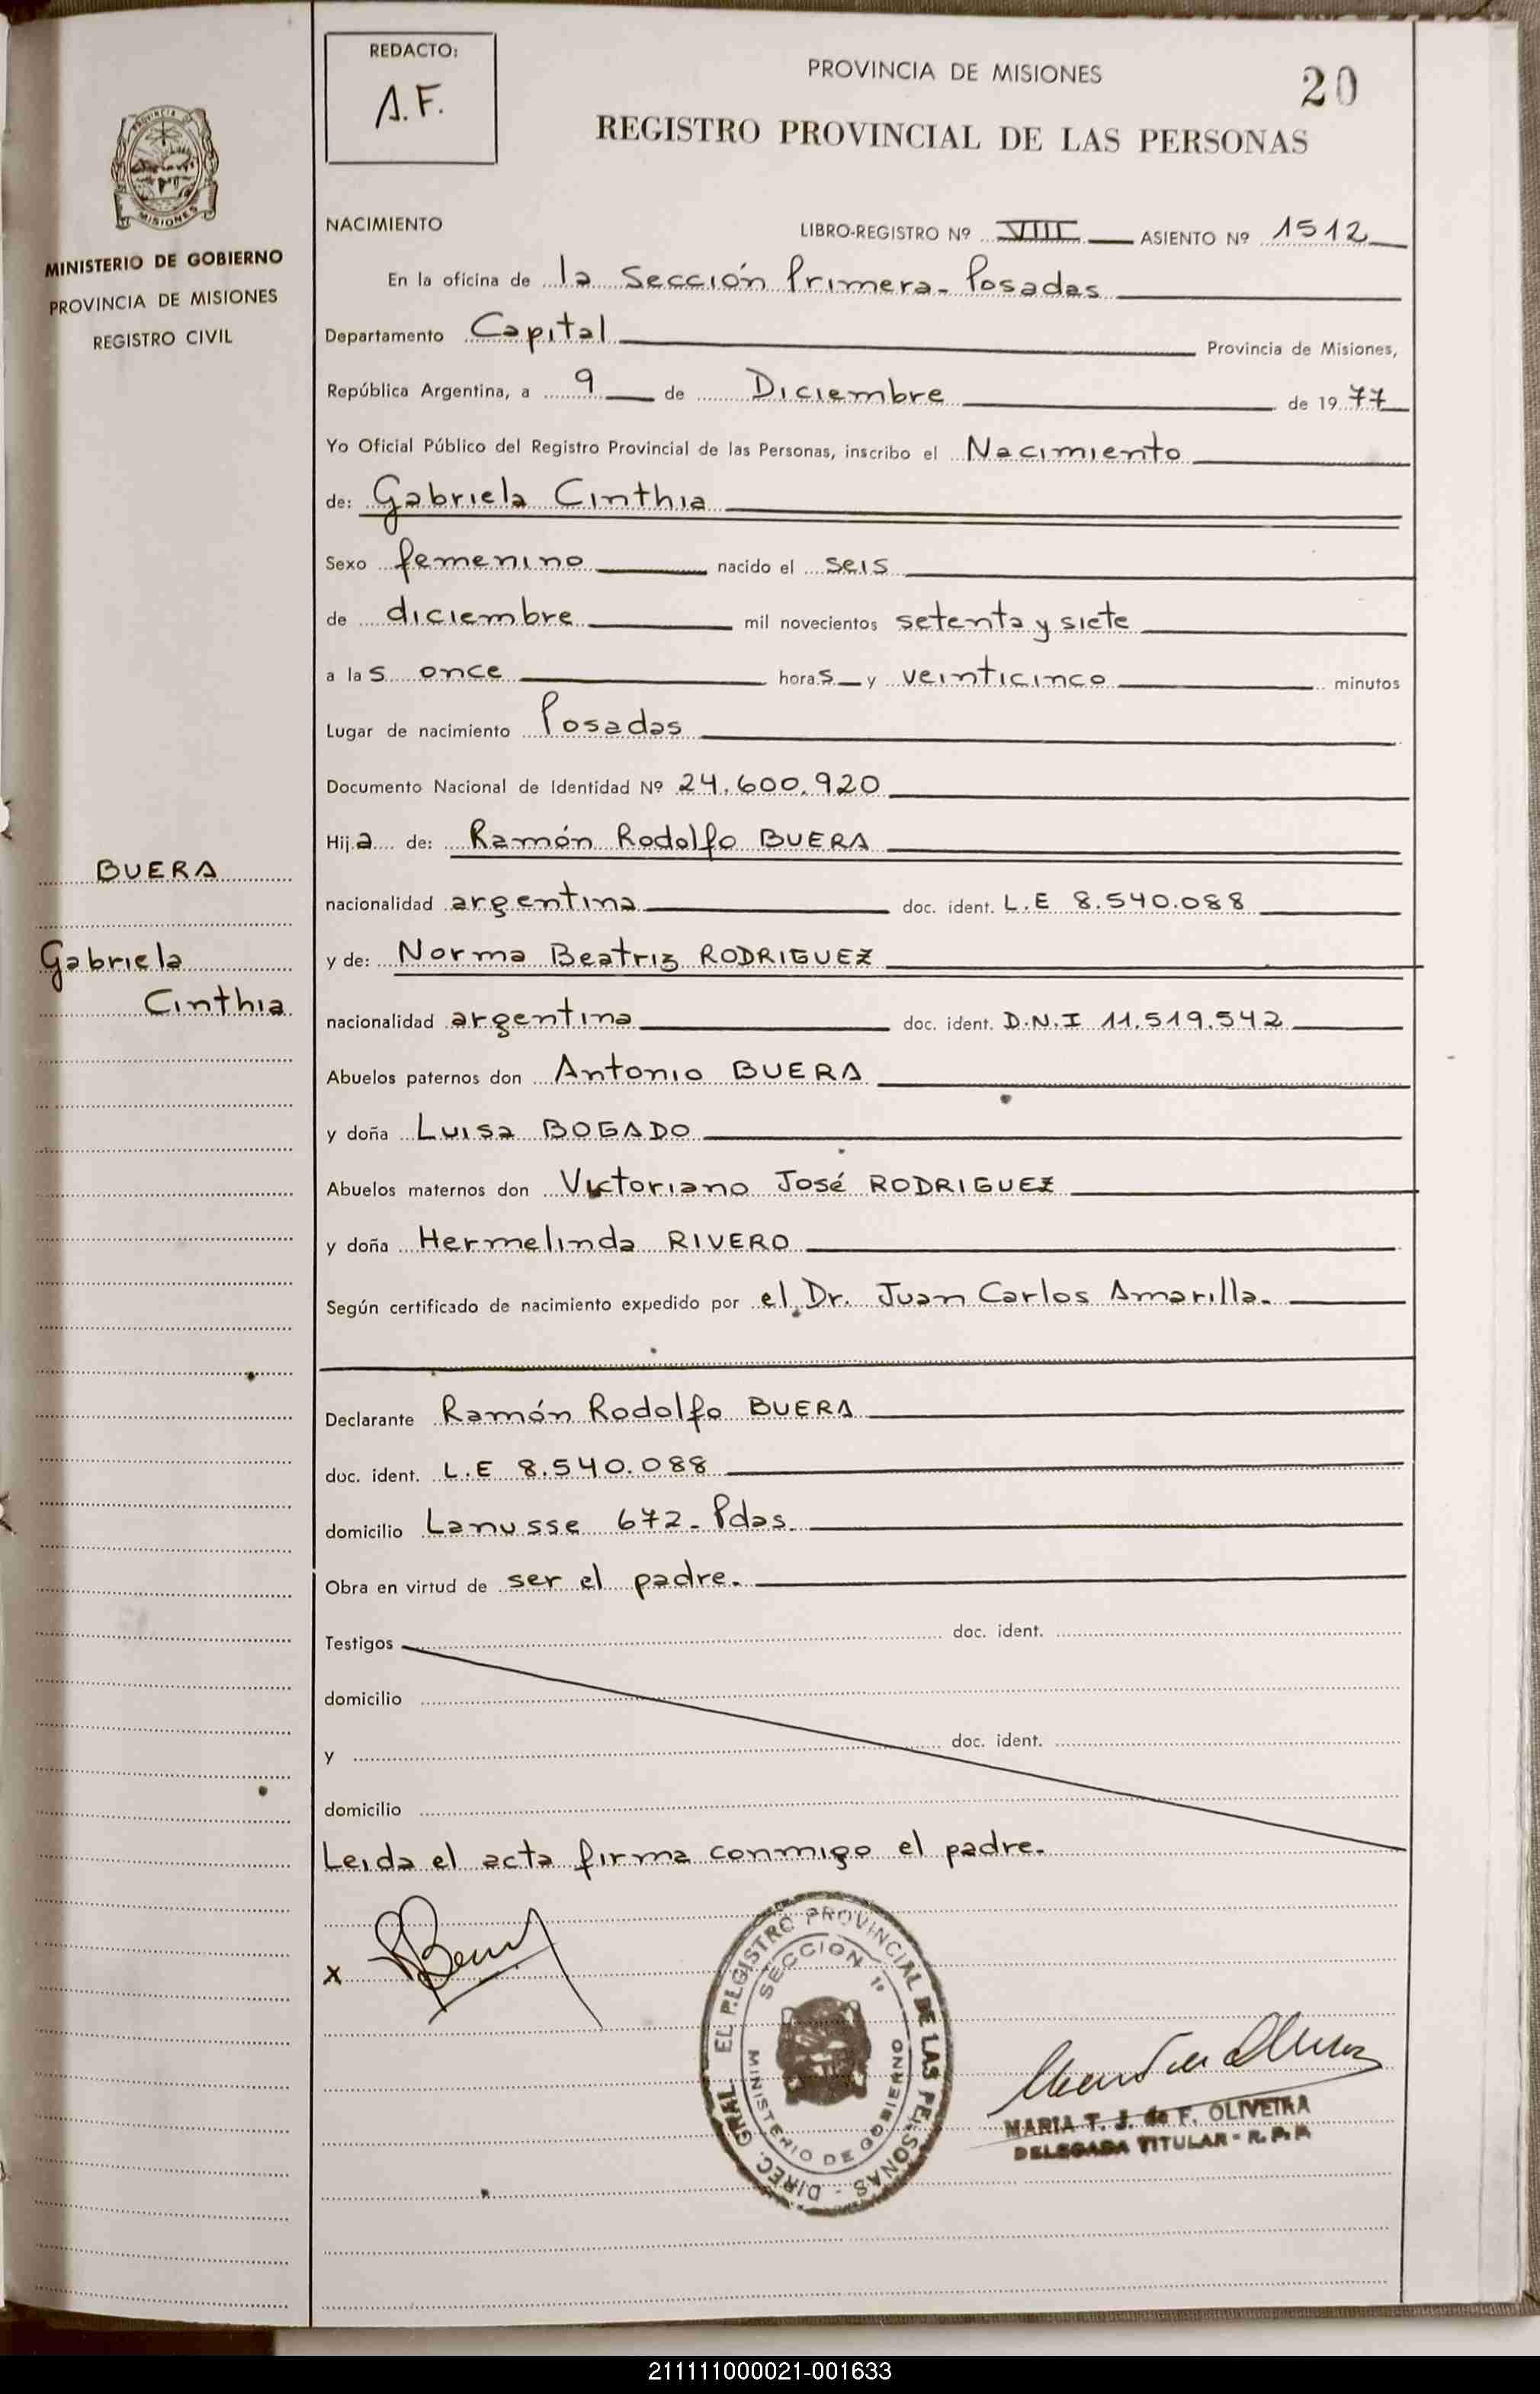 REDACTO:
A.F.
PROVINCIA DE MISIONES
20
REGISTRO PROVINCIAL DE LAS PERSONAS
MISIONES
MINISTERIO DE GOBIERNO
PROVINCIA DE MISIONES
REGISTRO CIVIL
NACIMIENTO
LIBRO-REGISTRO Nº VIII ASIENTO Nº 1512
En la oficina de la Sección Primera - Posadas
Departamento Capital Provincia de Misiones,
República Argentina, a 9 de Diciembre de 19 77
Yo Oficial Público del Registro Provincial de las Personas, inscribo el Nacimiento
de: Gabriela Cinthia
Sexo femenino nacido el seis
de diciembre mil novecientos setenta y siete
a las once horas y veinticinco minutos
Lugar de nacimiento Posadas
Documento Nacional de Identidad Nº 24.600.920
Hija de: Ramón Rodolfo BUERA
BUERA
nacionalidad argentina doc. ident. L.E 8.540.088
Gabriela
y de: Norma Beatriz RODRIGUEZ
Cinthia
nacionalidad argentina doc. ident. D.N.I 11.519.542
Abuelos paternos don Antonio BUERA
y doña Luisa BOGADO
Abuelos maternos don Victoriano José RODRIGUEZ
y doña Hermelinda RIVERO
Según certificado de nacimiento expedido por el Dr. Juan Carlos Amarilla.
Declarante Ramón Rodolfo BUERA
doc. ident. L.E 8.540.088
domicilio Lanusse 672 - Pdas.
Obra en virtud de ser el padre.
Testigos doc. ident.
domicilio
y doc. ident.
domicilio
Leida el acta firma conmigo el padre.
x
DIREC. GRAL. EL REGISTRO PROVINCIAL DE LAS PERSONAS -
SECCION 1º
MINISTERIO DE GOBIERNO
MARIA T. J. de F. OLIVEIRA
DELEGADA TITULAR - R. P. P.
211111000021-001633